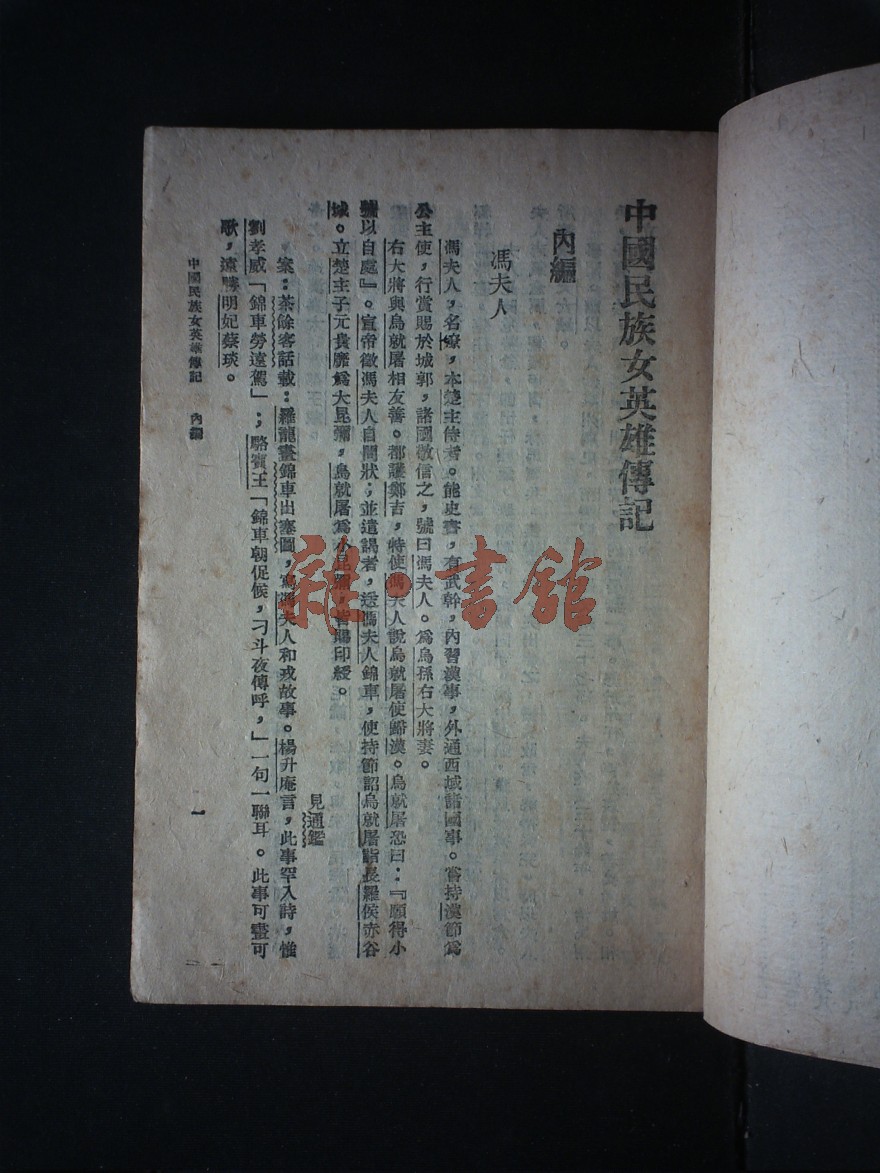 中國民族女英雄傳記
內編
馮夫人
馮夫人，名嫽，本楚主侍者。能史書，有武幹，內習漢事，外通西域諸國事。嘗持漢節爲
公主使，行賞賜於城郭，諸國敬信之，號曰馮夫人。爲烏孫右大將妻。
右大將與烏就屠相友善。都護鄭吉，特使馮夫人說烏就屠使歸漢。烏就屠恐曰：『願得小
號以自處』。宣帝徵馮夫人自問狀；並遣謁者，送馮夫人錦車，使持節詔烏就屠詣長羅侯赤谷
城。立楚主子元貴靡爲大昆彌，烏就屠爲小昆彌，皆賜印綬。
見通鑑
案：茶餘客話載：羅龍畫錦車出塞圖，寫馮夫人和戎故事。楊升庵言，此事罕入詩，惟
劉孝威「錦車勞遠駕」；駱賓王「錦車朝促候，刁斗夜傳呼，」一句一聯耳。此事可畫可
歌，遠勝明妃蔡琰。
中國民族女英雄傳記　內編
一
雜·書館